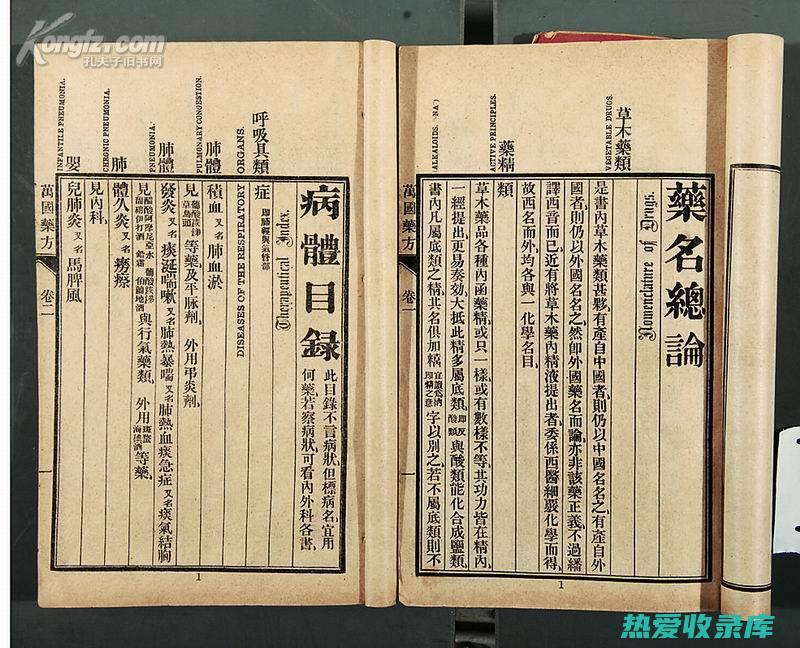 Kongfz.com
孔夫子旧书网
藥名總論
Nomenclature of Drugs.
草木藥類
VEGETABLE DRUGS.
是書內草木藥類甚夥有產自中國者則仍以中國名名之有產自外
國者則仍以外國名名之然卽外國藥名而論亦非該藥正義不過繙
譯西音而已近有將草木藥內精液提出者委係西醫細覈化學而得
故西名而外均各與一化學名目
藥精
類
ACTIVE PRINCIPLES.
草木藥品各種內函藥精或只一樣或有數樣不等其功力皆在精內
一經提出更易奏効大抵此精多屬底類卽反酸類與酸類能化合成鹽類
ALKALOIDS.
書內凡屬底類之精其名俱加 宜讀爲納卽精之意字以別之若不屬底類則不
萬國藥方
卷二
一
1
病體目錄
Therapeutical Index.
此目錄不言病狀但標病名宜用
何藥若察病狀可看內外科各書
呼吸具類
症 卽肺經與氣管部
DISEASES OF THE RESPIRATORY
ORGANS.
肺體
積血 又名 肺血淤
PULMONARY CONGESTION.
見 等藥及平脈劑 外用弔炎劑
肺體
發炎 又名 痰涎喘嗽 又名 肺熱暴喘 又名 肺熱血痰急症 又名 痰氣結胸
PNEUMONIA.
與行氣藥類 外用 等藥
肺
體久炎 又名 癆瘵
CHRONIC PNEUMONIA.
見內科
嬰
兒肺炎 又名 馬脾風
INFANTILE PNEUMONIA.
萬國藥方
卷二
1
热爱收录库